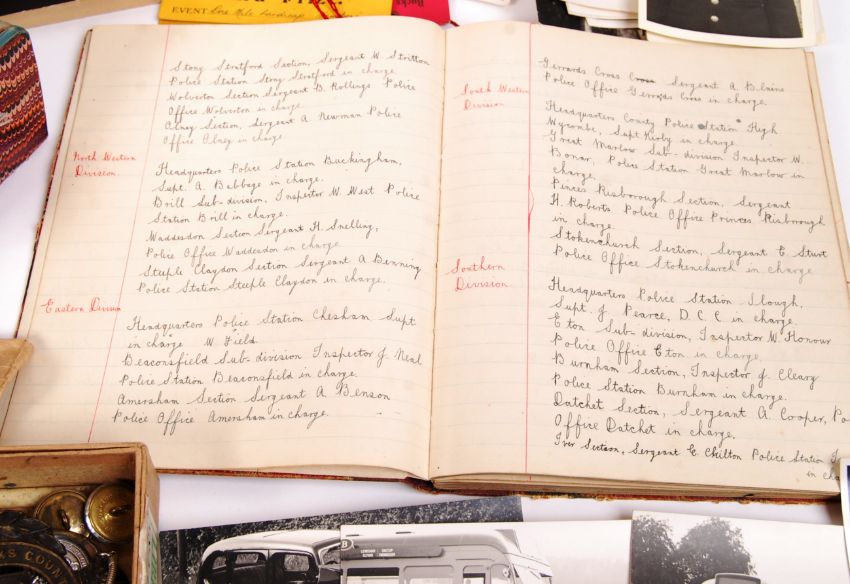 EVENT One Mile Handicap
Bucks
Stony Stratford Section, Sergeant W Stritton
Police Station Stony Stratford in charge.
Wolverton Section Sergeant B. Rollings Police
Office Wolverton in charge
Olney Section, Sergeant A Newman Police
Office Olney in charge
North Western
Division
Headquarters Police Station Buckingham,
Supt. A. Babbage in charge.
Brill Sub-division, Inspector W. West Police
Station Brill in charge.
Waddesdon Section Sergeant H. Snelling,
Police Office Waddesdon in charge.
Steeple Claydon Section Sergeant A Benning
Police Station Steeple Claydon in charge.
Eastern Division
Headquarters Police Station Chesham Supt
in charge W Field.
Beaconsfield Sub-division Inspector J. Neal
Police Station Beaconsfield in charge.
Amersham Section Sergeant A Benson
Police Office Amersham in charge.
Gerrards Cross Cross Sergeant A
Police Office Gerrards Cross in charge.
South Western
Division
Headquarters County Police Station High
Wycombe, Supt Kirby in charge.
Great Marlow Sub-division Inspector W.
Bonar, Police Station Great Marlow in
charge.
Princes Risborough Section, Sergeant
H. Roberts Police Office Princes Risborough
in charge.
Stokenchurch Section, Sergeant E Sturt
Police Office Stokenchurch in charge
Southern
Division
Headquarters Police Station Slough,
Supt. J. Pearce, D.C.C in charge.
Eton Sub-division, Inspector W. Honour
Police Office Eton in charge.
Burnham Section, Inspector J. Cleary
Police Station Burnham in charge.
Datchet Section, Sergeant A. Cooper, Po
Office Datchet in charge.
Iver Section, Sergeant E Chilton Police Station I
in cha